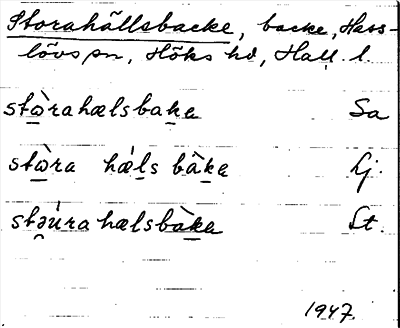 Storahällsbacke, backe, Hass-
lövs sn, Höks hd, Hall. l.
stὼ̱rahælsbaḵe Sa
stὼ̱ra hæ̀ḻs bàḵe Lj.
stə̯úrahælsbàḵe St.
1947.